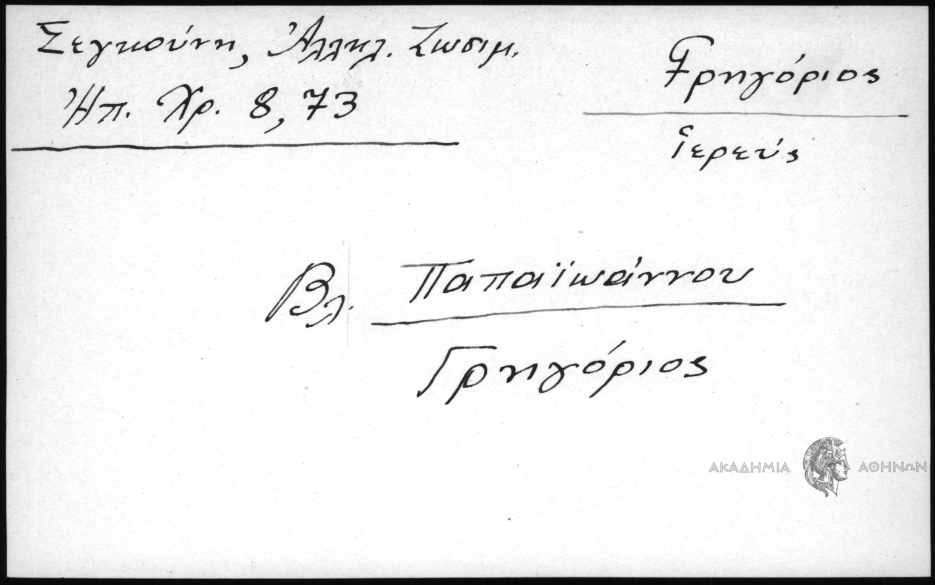 Σεγκούνη, Ἀλληλ. Ζωσιμ.
Ἠπ. Χρ. 8,73
Γρηγόριος
ἱερεύς
Βλ. Παπαϊωάννου
Γρηγόριος
ΑΚΑΔΗΜΙΑ ΑΘΗΝΩΝ